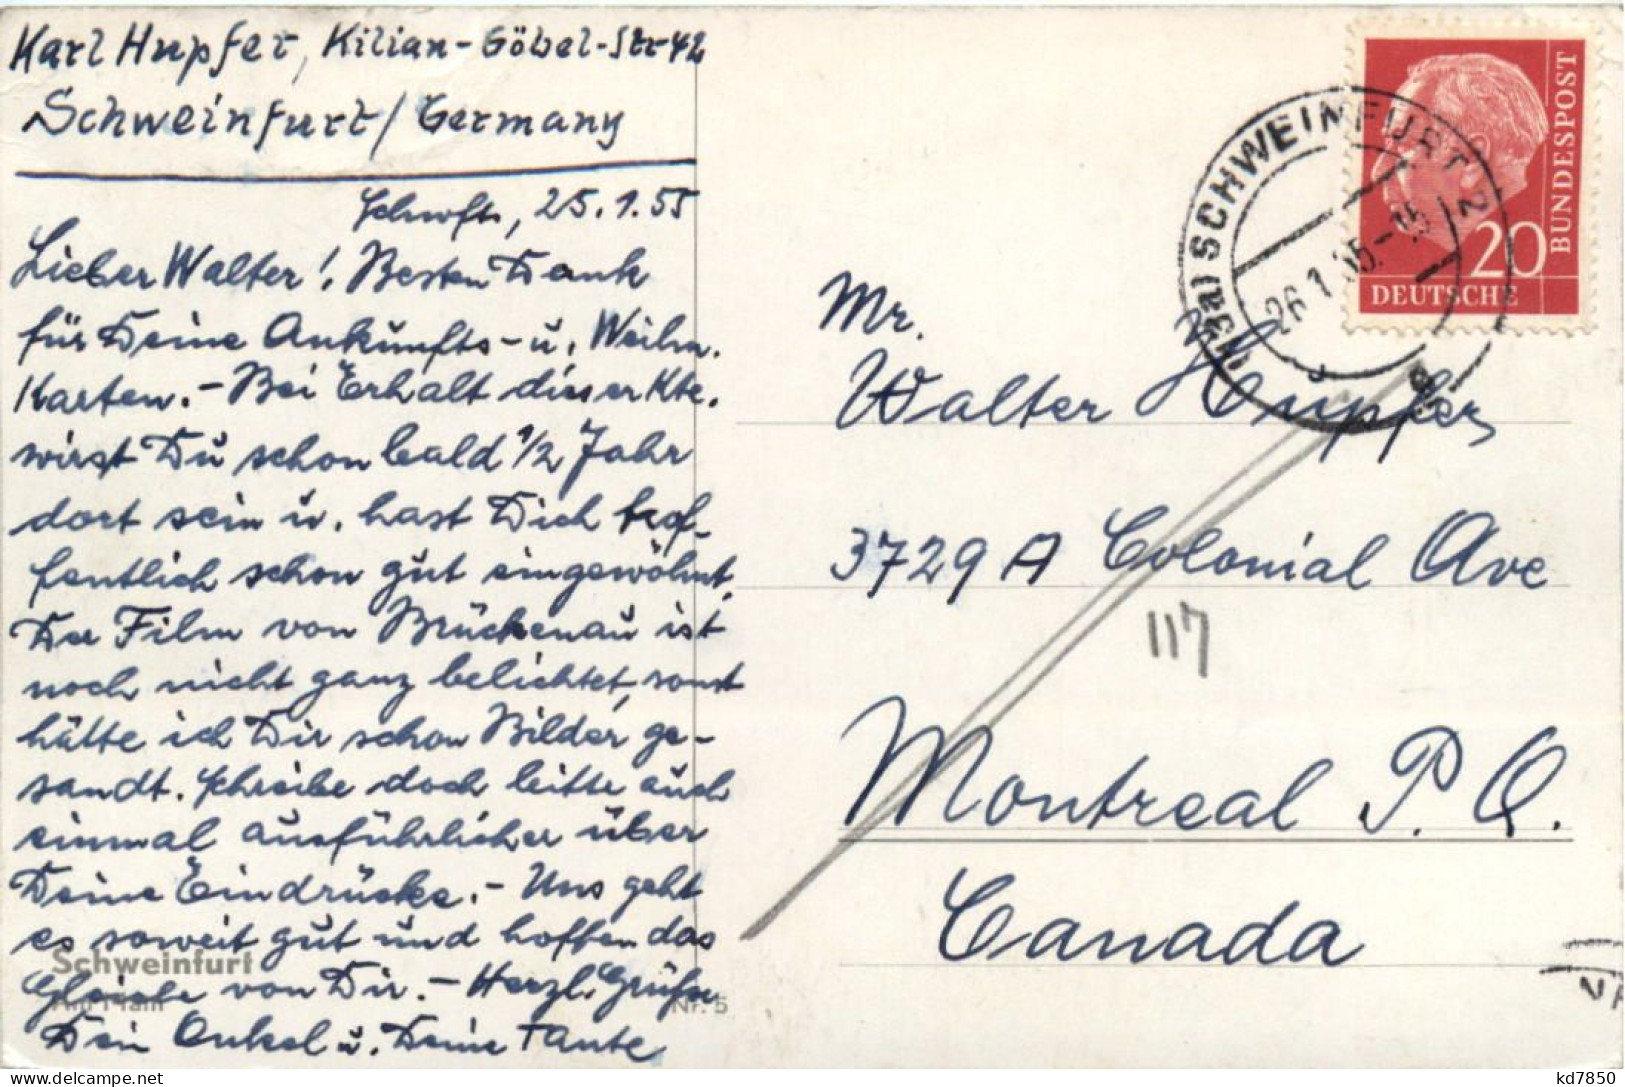 Karl Hupfer, Kilian-Göbel-Str 42
Schweinfurt/Germany
Schwft., 25.1.55
Lieber Walter! Besten Dank
für Deine Ankunfts- u. Weihn.
Karten.- Bei Erhalt dieser Kte.
wirst Du schon bald 1/2 Jahr
dort sein u. hast Dich hof-
fentlich schon gut eingewöhnt.
Der Film von Brückenau ist
noch nicht ganz belichtet, sonst
hätte ich Dir schon Bilder ge-
sandt. Schreibe doch bitte auch
einmal ausführlicher über
Deine Eindrücke.- Uns geht
es soweit gut und hoffen das
Gleiche von Dir.- Herzl. Grüße
Dein Onkel u. Deine Tante
Schweinfurt
Am Main
Nr. 5
BUNDESPOST
20
DEUTSCHE
SCHWEINFURT 2
26.1.55.-15
Mr.
Walter Hupfer
3729 A Colonial Ave
117
Montreal P.Q.
Canada
kd7850